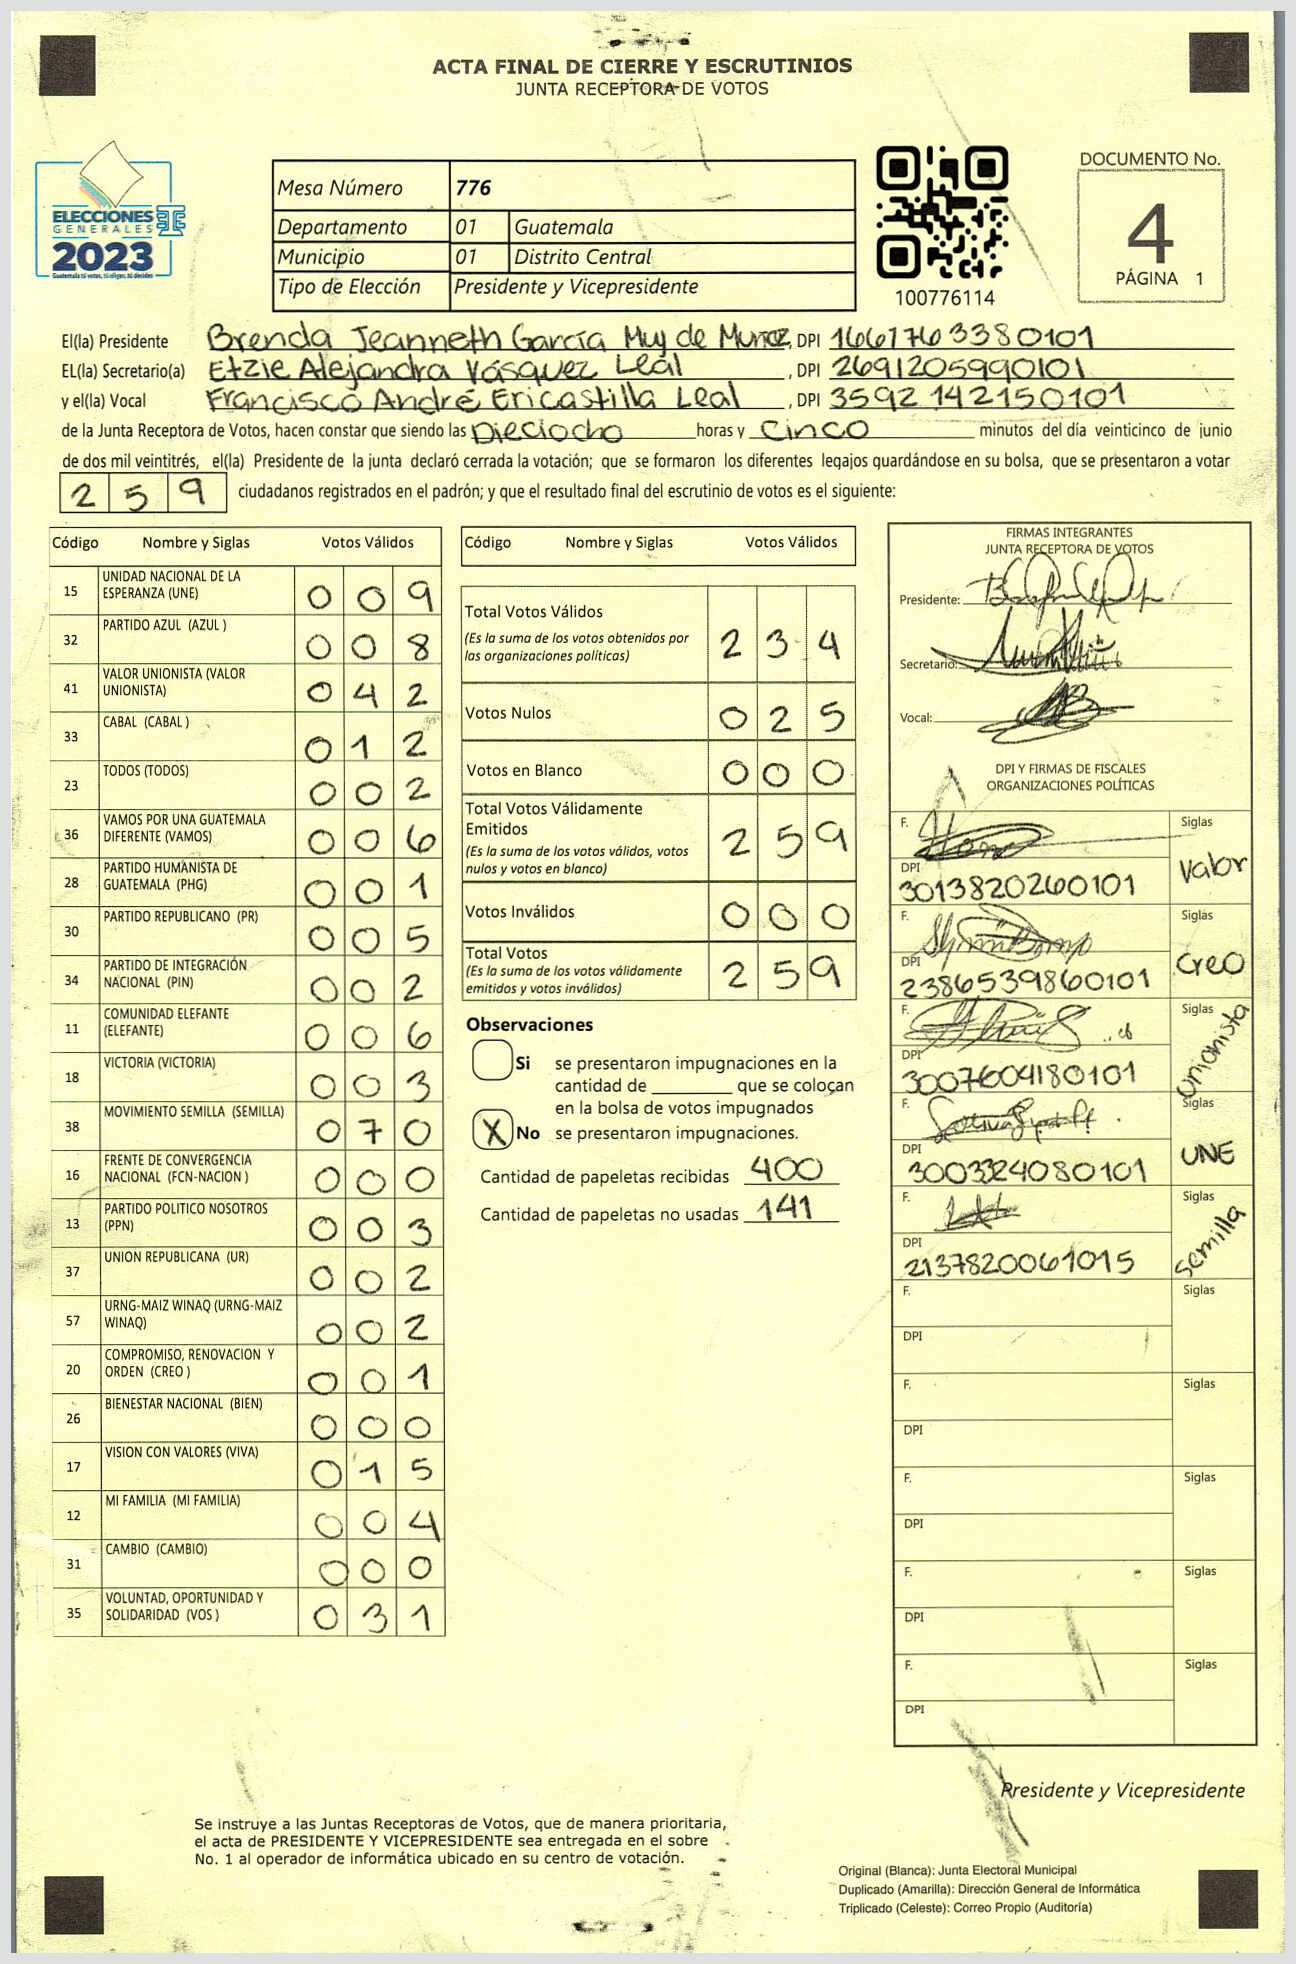 ACTA FINAL DE CIERRE Y ESCRUTINIOS
JUNTA RECEPTORA DE VOTOS
ELECCIONES
GENERALES
2023
Guatemala tú votas, tú eliges, tú decides
Mesa Número 776
Departamento 01 Guatemala
Municipio 01 Distrito Central
Tipo de Elección Presidente y Vicepresidente
100776114
DOCUMENTO No.
4
PÁGINA 1
El(la) Presidente Brenda Jeanneth García Muy de Muñoz, DPI 1661763380101
EL(la) Secretario(a) Etzie Alejandra Vásquez Leal, DPI 2691205990101
y el(la) Vocal Francisco André Ericastilla Leal, DPI 3592142150101
de la Junta Receptora de Votos, hacen constar que siendo las Dieciocho horas y cinco minutos del día veinticinco de junio
de dos mil veintitrés, el(la) Presidente de la junta declaró cerrada la votación; que se formaron los diferentes legajos guardándose en su bolsa, que se presentaron a votar
259 ciudadanos registrados en el padrón; y que el resultado final del escrutinio de votos es el siguiente:
Código Nombre y Siglas Votos Válidos
15 UNIDAD NACIONAL DE LA ESPERANZA (UNE) 009
32 PARTIDO AZUL (AZUL ) 008
41 VALOR UNIONISTA (VALOR UNIONISTA) 042
33 CABAL (CABAL ) 012
23 TODOS (TODOS) 002
36 VAMOS POR UNA GUATEMALA DIFERENTE (VAMOS) 006
28 PARTIDO HUMANISTA DE GUATEMALA (PHG) 001
30 PARTIDO REPUBLICANO (PR) 005
34 PARTIDO DE INTEGRACIÓN NACIONAL (PIN) 002
11 COMUNIDAD ELEFANTE (ELEFANTE) 006
18 VICTORIA (VICTORIA) 003
38 MOVIMIENTO SEMILLA (SEMILLA) 070
16 FRENTE DE CONVERGENCIA NACIONAL (FCN-NACION ) 000
13 PARTIDO POLITICO NOSOTROS (PPN) 003
37 UNION REPUBLICANA (UR) 002
57 URNG-MAIZ WINAQ (URNG-MAIZ WINAQ) 002
20 COMPROMISO, RENOVACION Y ORDEN (CREO ) 001
26 BIENESTAR NACIONAL (BIEN) 000
17 VISION CON VALORES (VIVA) 015
12 MI FAMILIA (MI FAMILIA) 004
31 CAMBIO (CAMBIO) 000
35 VOLUNTAD, OPORTUNIDAD Y SOLIDARIDAD (VOS ) 031
Código Nombre y Siglas Votos Válidos
Total Votos Válidos 234
(Es la suma de los votos obtenidos por
las organizaciones políticas)
Votos Nulos 025
Votos en Blanco 000
Total Votos Válidamente
Emitidos 259
(Es la suma de los votos válidos, votos
nulos y votos en blanco)
Votos Inválidos 000
Total Votos 259
(Es la suma de los votos válidamente
emitidos y votos inválidos)
Observaciones
Si se presentaron impugnaciones en la
cantidad de ________ que se colocan
en la bolsa de votos impugnados
X No se presentaron impugnaciones.
Cantidad de papeletas recibidas 400
Cantidad de papeletas no usadas 141
FIRMAS INTEGRANTES
JUNTA RECEPTORA DE VOTOS
Presidente:
Secretario:
Vocal:
DPI Y FIRMAS DE FISCALES
ORGANIZACIONES POLÍTICAS
F. Siglas
DPI 3013820260101 Valor
F. Siglas
DPI 2386539860101 Creo
F. Siglas
DPI 3007604180101 Unionista
F. Siglas
DPI 3003324080101 UNE
F. Siglas
DPI 2137820061015 Semilla
F. Siglas
DPI
F. Siglas
DPI
F. Siglas
DPI
F. Siglas
DPI
F. Siglas
DPI
Presidente y Vicepresidente
Se instruye a las Juntas Receptoras de Votos, que de manera prioritaria,
el acta de PRESIDENTE Y VICEPRESIDENTE sea entregada en el sobre
No. 1 al operador de informática ubicado en su centro de votación.
Original (Blanca): Junta Electoral Municipal
Duplicado (Amarilla): Dirección General de Informática
Triplicado (Celeste): Correo Propio (Auditoría)